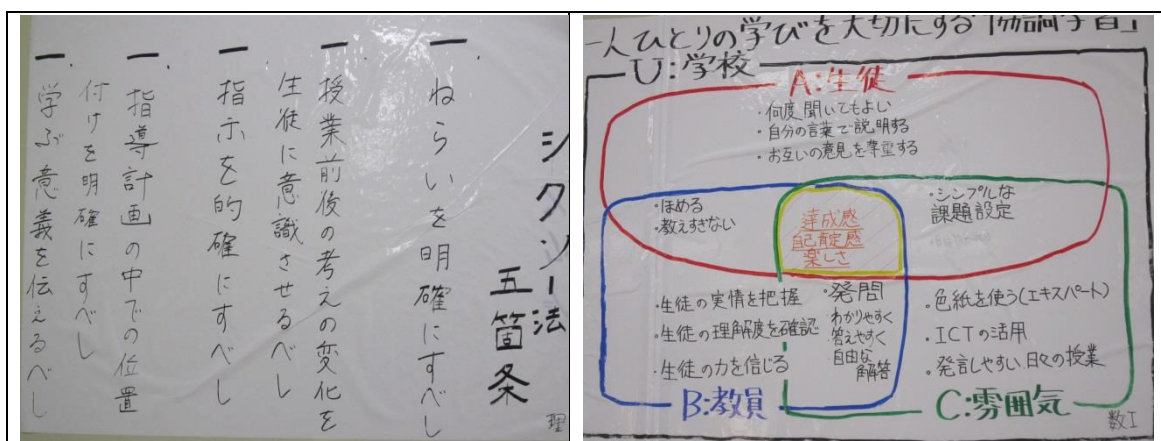 ジグソー法
五箇条
一、ねらいを明確にすべし
一、授業前後の考えの変化を
生徒に意識させるべし
一、指示を的確にすべし
一、指導計画の中での位置
付けを明確にすべし
学ぶ意義を伝えるべし
理
一人ひとりの学びを大切にする「協調学習」
U:学校
A:生徒
・何度聞いてもよい
・自分の言葉で説明する
・お互いの意見を尊重する
・ほめる
・教えすぎない
達成感
自己肯定感
楽しさ
・シンプルな
課題設定
・生徒の実情を把握
・生徒の理解度を確認
・生徒の力を信じる
・発問
わかりやすく
・答えやすく
・自由な
解答
・色紙を使う(エキスパート)
・ICTの活用
・発言しやすい日々の授業
B:教員
C:雰囲気
数I